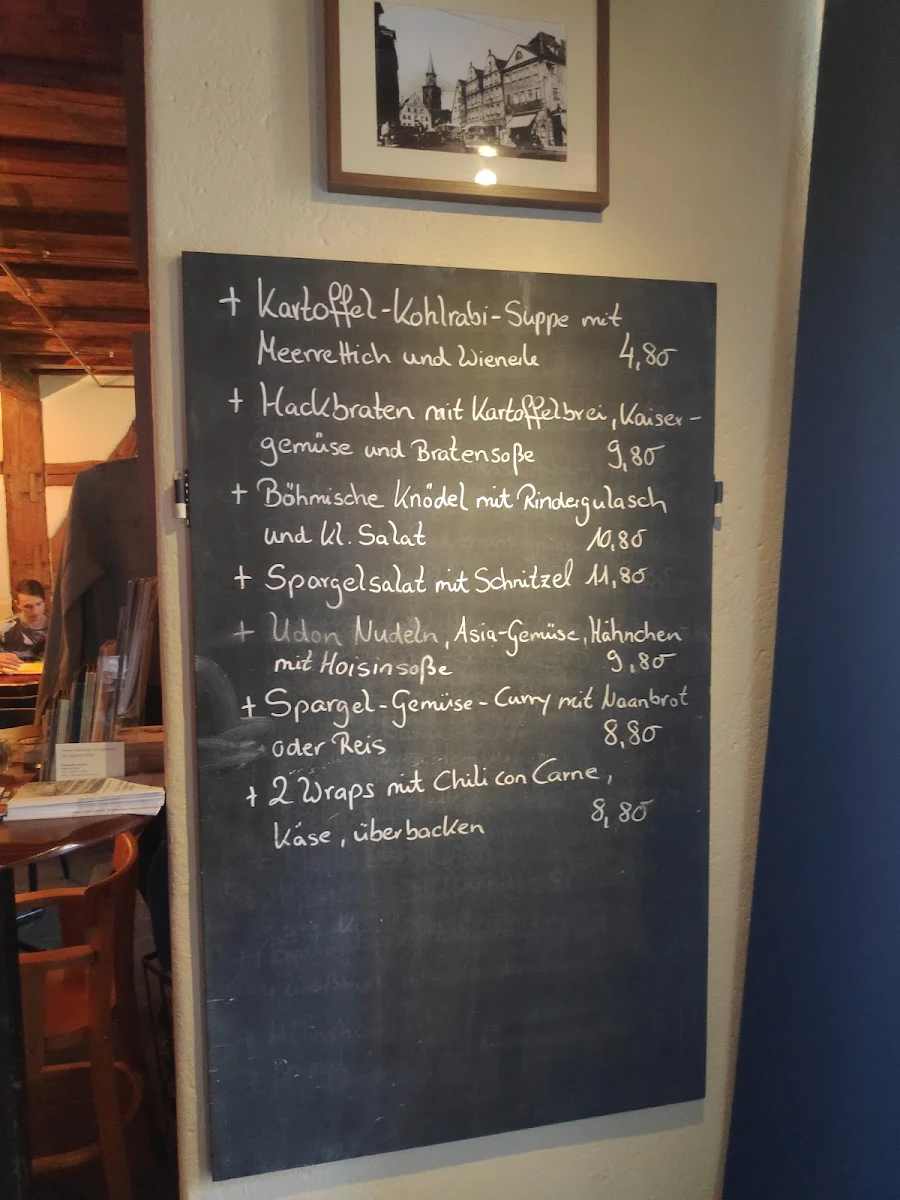 + Kartoffel-Kohlrabi-Suppe mit
Meerrettich und Wienerle 4,80
+ Hackbraten mit Kartoffelbrei, Kaiser-
gemüse und Bratensoße 9,80
+ Böhmische Knödel mit Rindergulasch
und kl. Salat 10,80
+ Spargelsalat mit Schnitzel 11,80
+ Udon Nudeln, Asia-Gemüse, Hähnchen
mit Hoisinsoße 9,80
+ Spargel-Gemüse-Curry mit Naanbrot
oder Reis 8,80
+ 2 Wraps mit Chili con Carne,
Käse, überbacken 8,80